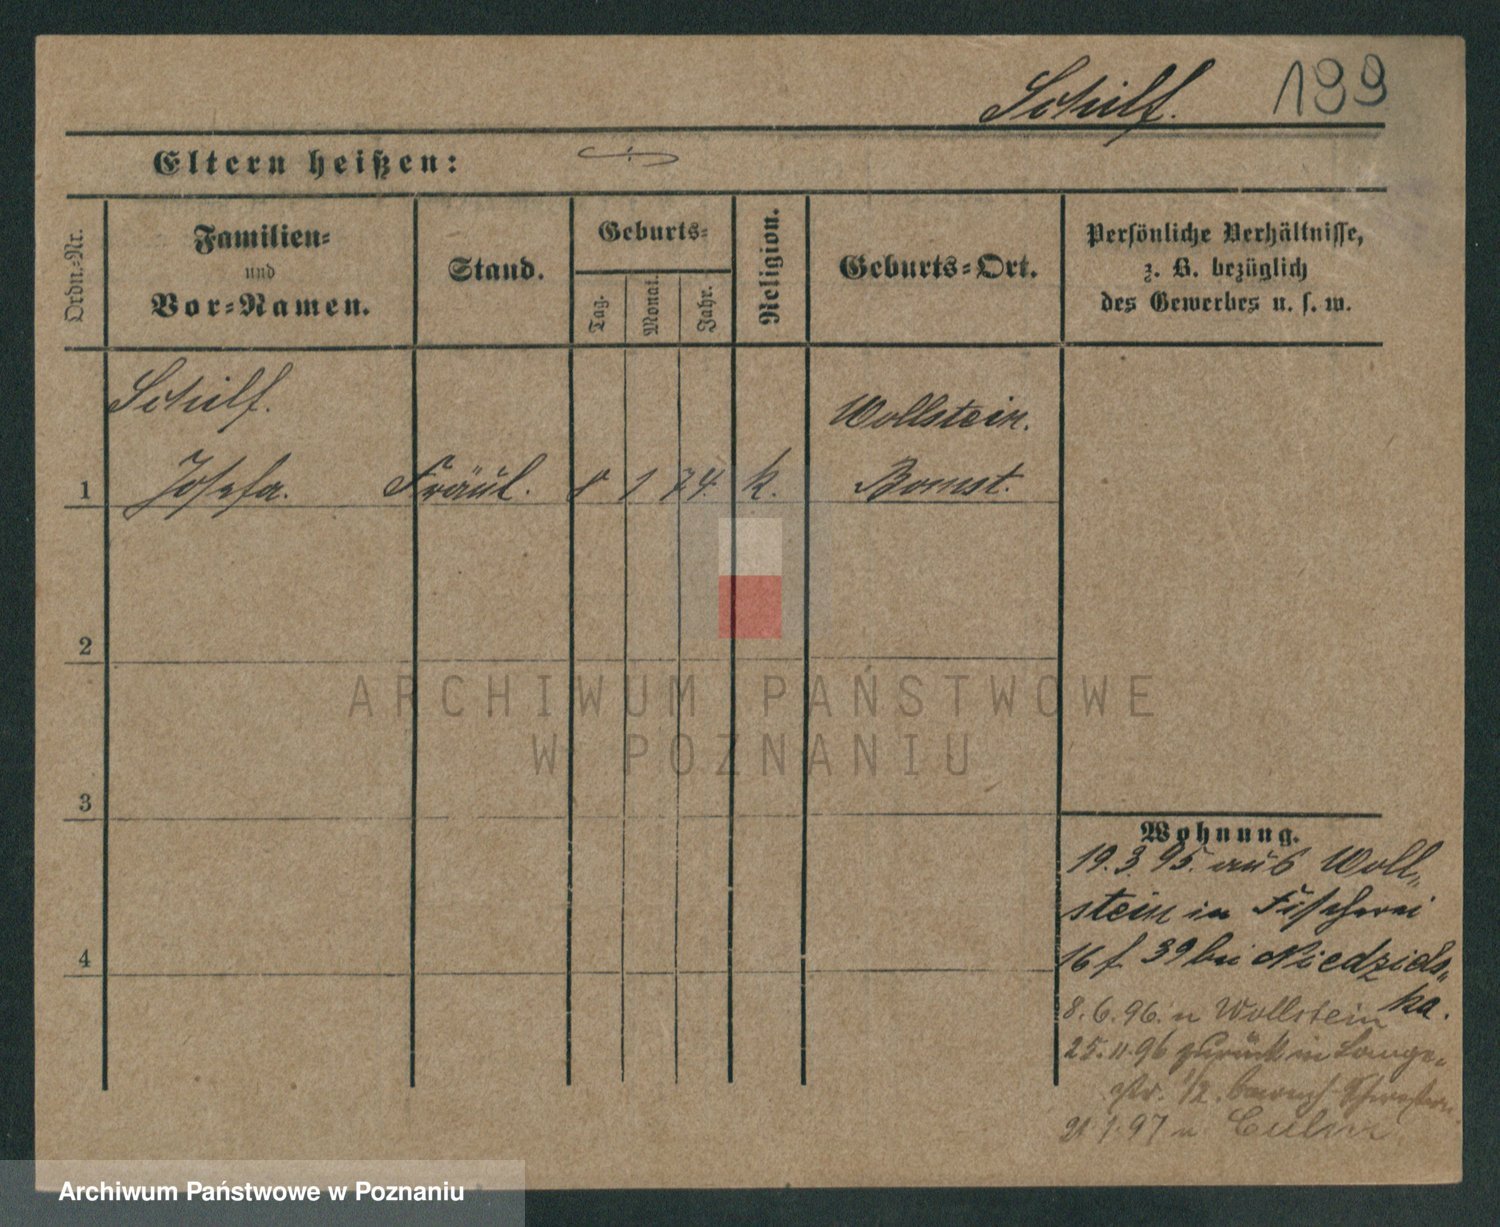 Schilf. 199
Eltern heißen:
Ordn.-Nr.
Familien-
und
Vor-Namen.
Stand.
Geburts-
Tag.
Monat.
Jahr.
Religion.
Geburts-Ort.
Persönliche Verhältnisse,
z. B. bezüglich
des Gewerbes u. s. w.
Schilf.
Wollstein.
1 Josefa. Fräul. 8 1 74. k. Bomst.
2
3
4
Wohnung.
19.3.95. aus Woll„
stein in Fischerei
16 f. 39 bei Niedzids„
ka.
8.6.96. n Wollstein
25.11.96 zurück in Lange„
str. 1/2. Schwestern
21.1.97 n Culm
ARCHIWUM PAŃSTWOWE
W POZNANIU
Archiwum Państwowe w Poznaniu